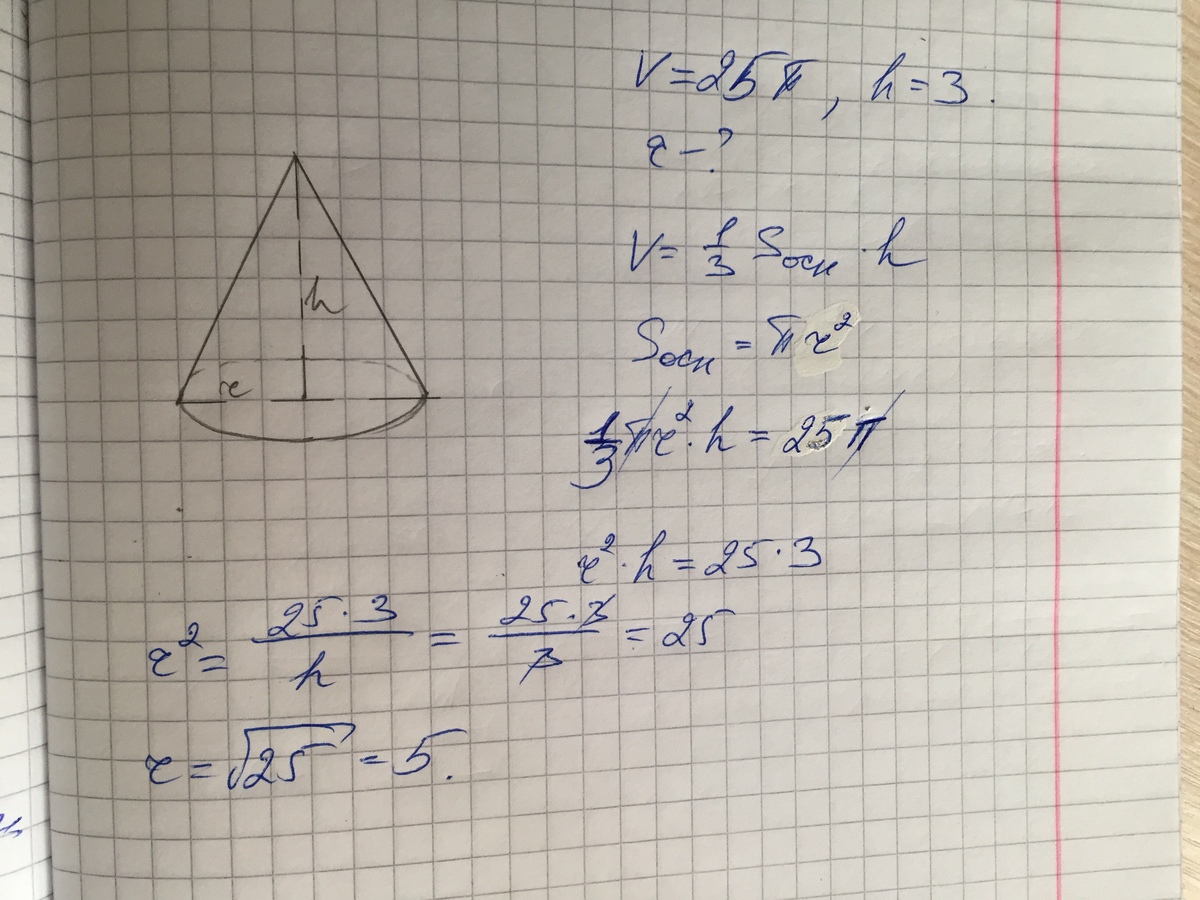 V = 25π, h = 3.
r – ?
h
r
V = 1/3 Sосн · h
Sосн = πr²
1/3 πr² · h = 25π
r² · h = 25 · 3
r² = 25 · 3 / h = 25 · 3 / 3 = 25
r = √25 = 5.